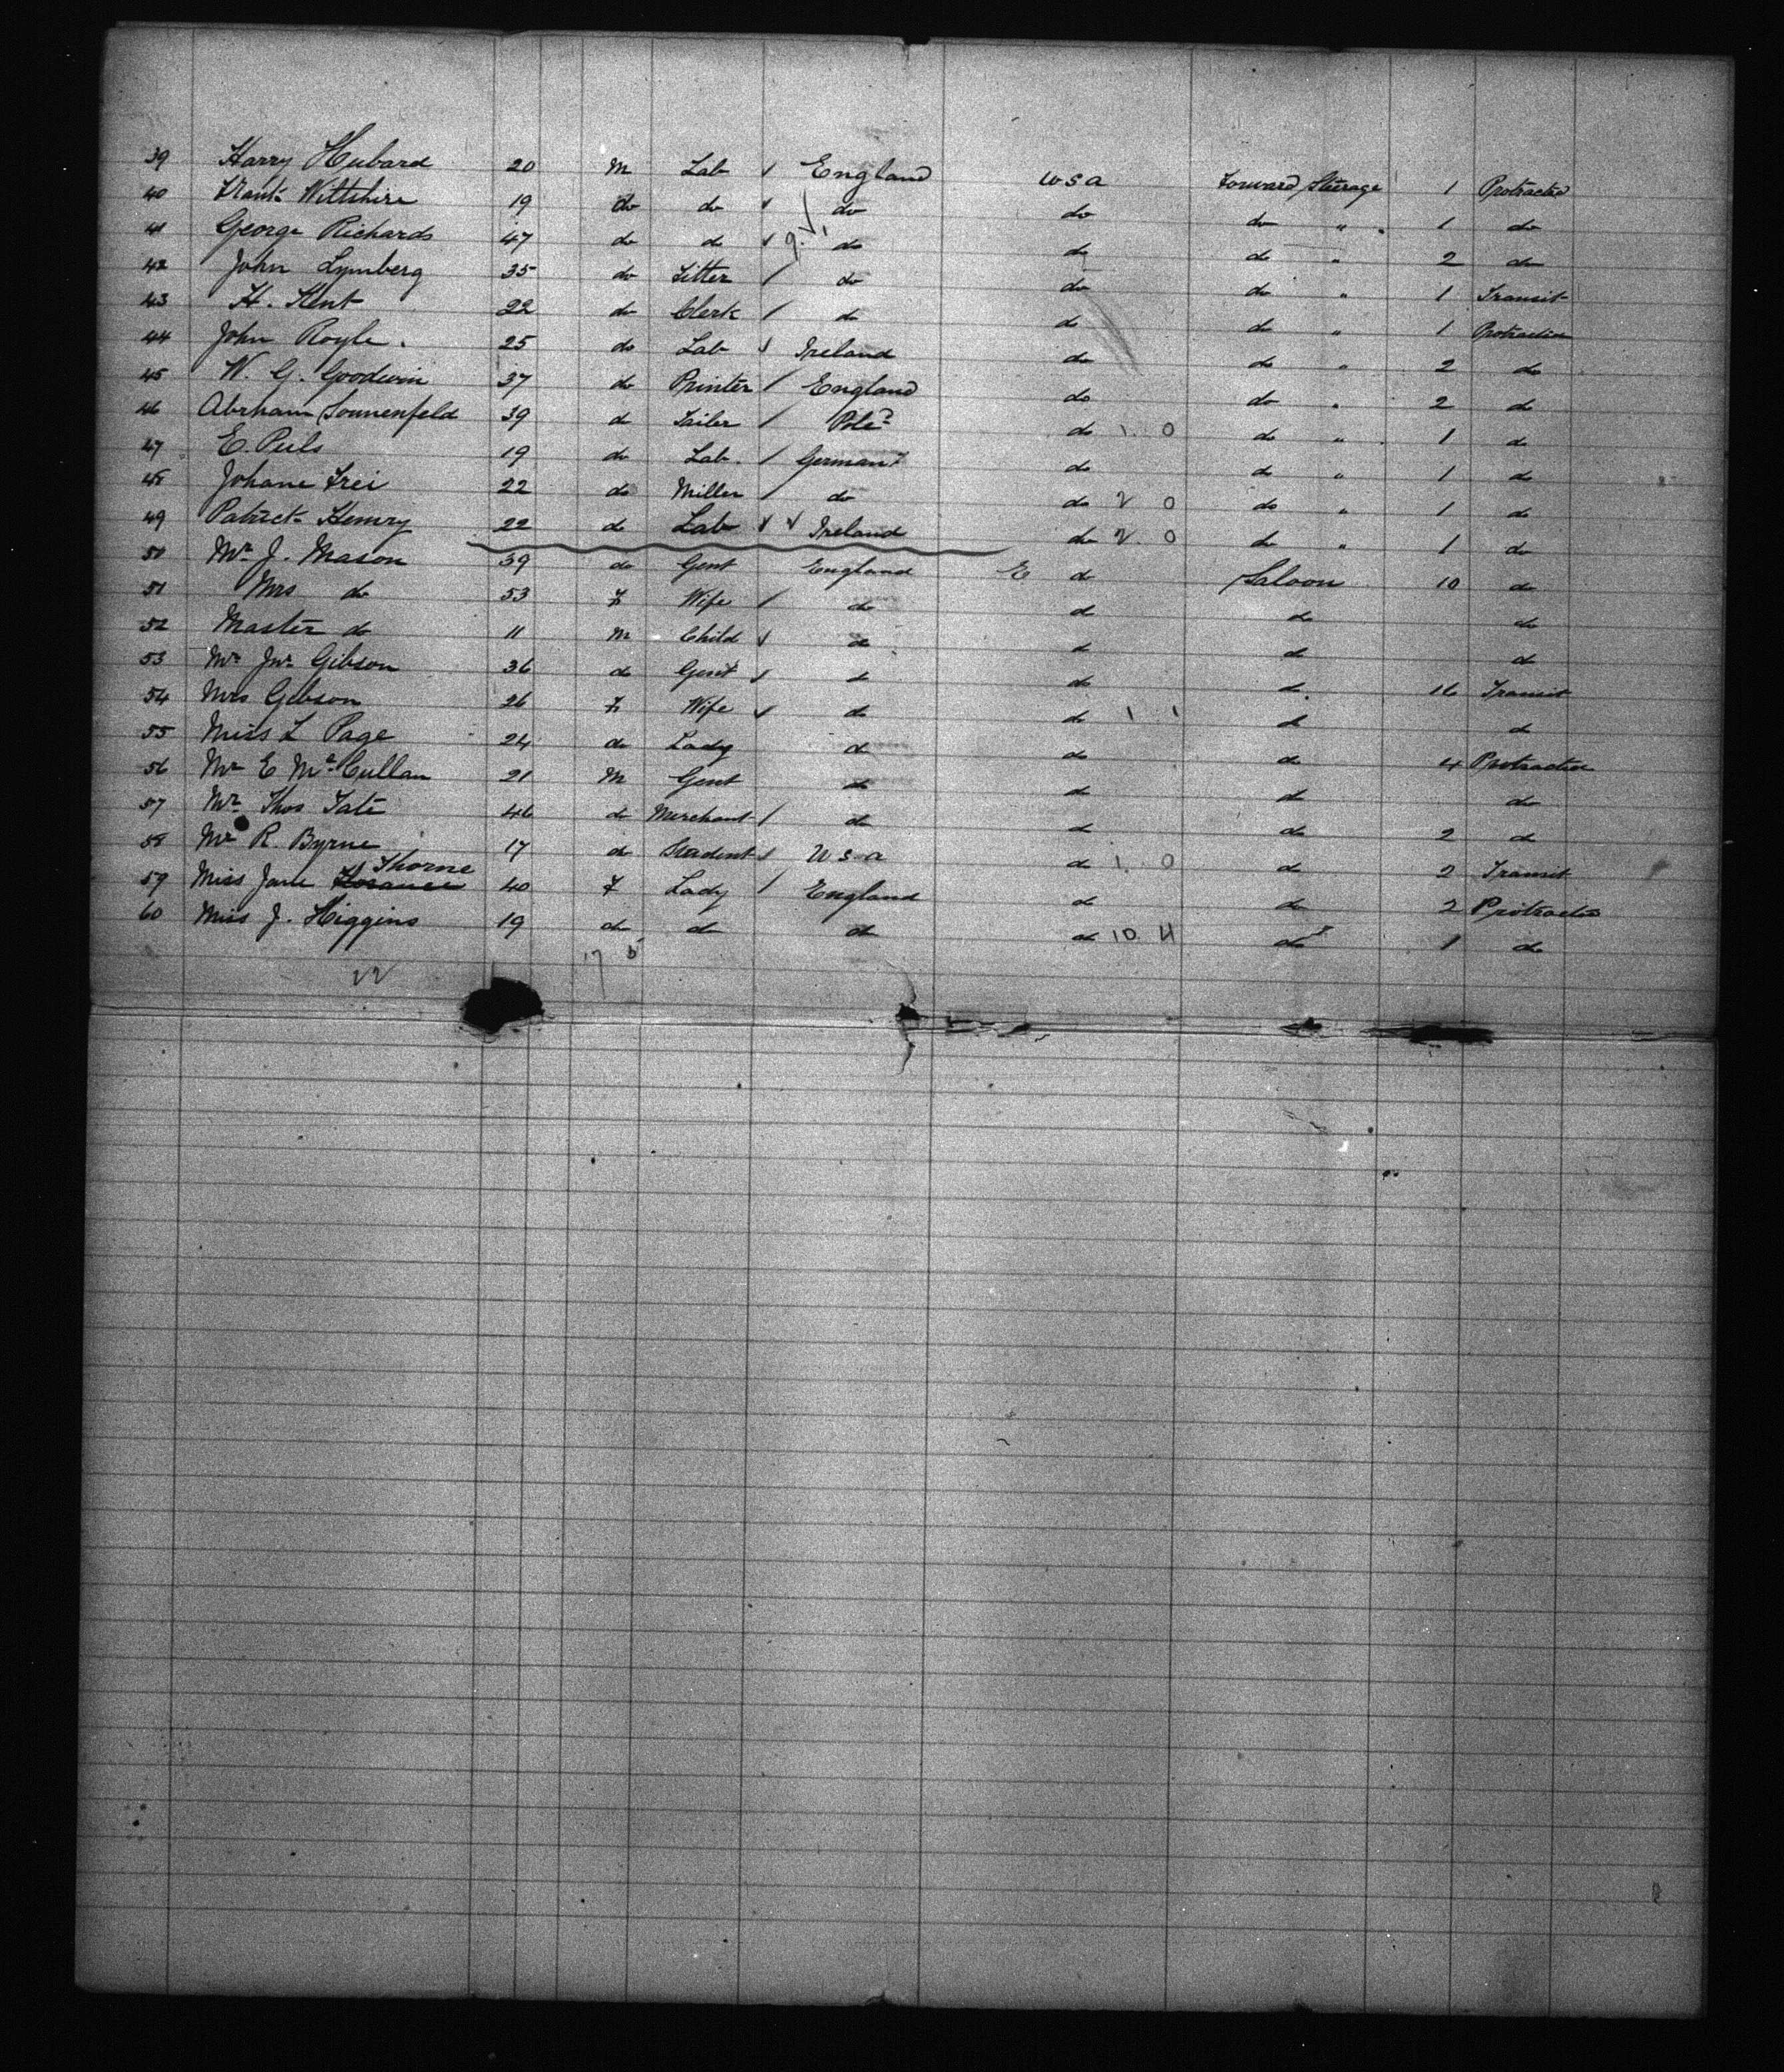 39 Harry Hubard 20 M Lab England USA Forward Steerage 1 Protracted
40 Frank Wiltshire 19 do do do do do " 1 do
41 George Richards 47 do do do do do " 2 do
42 John Lymberg 35 do Fitter do do do " 1 Transit
43 H. Kent 22 do Clerk do do do " 1 Protracted
44 John Royle. 25 do Lab Ireland do do " 2 do
45 W. G. Goodwin 37 do Printer England do do " 2 do
46 Abrham Sonnenfeld 39 do Tailer do 1. 0 do " 1 do
47 E. Peils 19 do Lab. German do do " 1 do
48 Johane Frei 22 do Miller do do 2 0 do " 1 do
49 Patrick Henry 22 do Lab Ireland do 2. 0 do " 1 do
50 Mr J. Mason 39 do Gent England E do Saloon 10 do
51 Mrs do 53 F Wife do do do do
52 Master do 11 M Child do do do do
53 Mr Jno Gibson 36 do Gent do do do 16 Transit
54 Mrs Gibson 26 F Wife do do 1 1 do do
55 Miss L Page 24 do Lady do do do 4 Protracted
56 Mr E McCullan 21 M Gent do do do do
57 Mr Thos Tate 46 do Merchant do do do 2 do
58 Mr R. Byrne 17 do Student USA do 1. 0 do 2 Transit
59 Miss Jane Thorne 40 F Lady England do do 2 Protracted
60 Miss J. Higgins 19 do do do do 10. 4 do 1 do
22 17 5